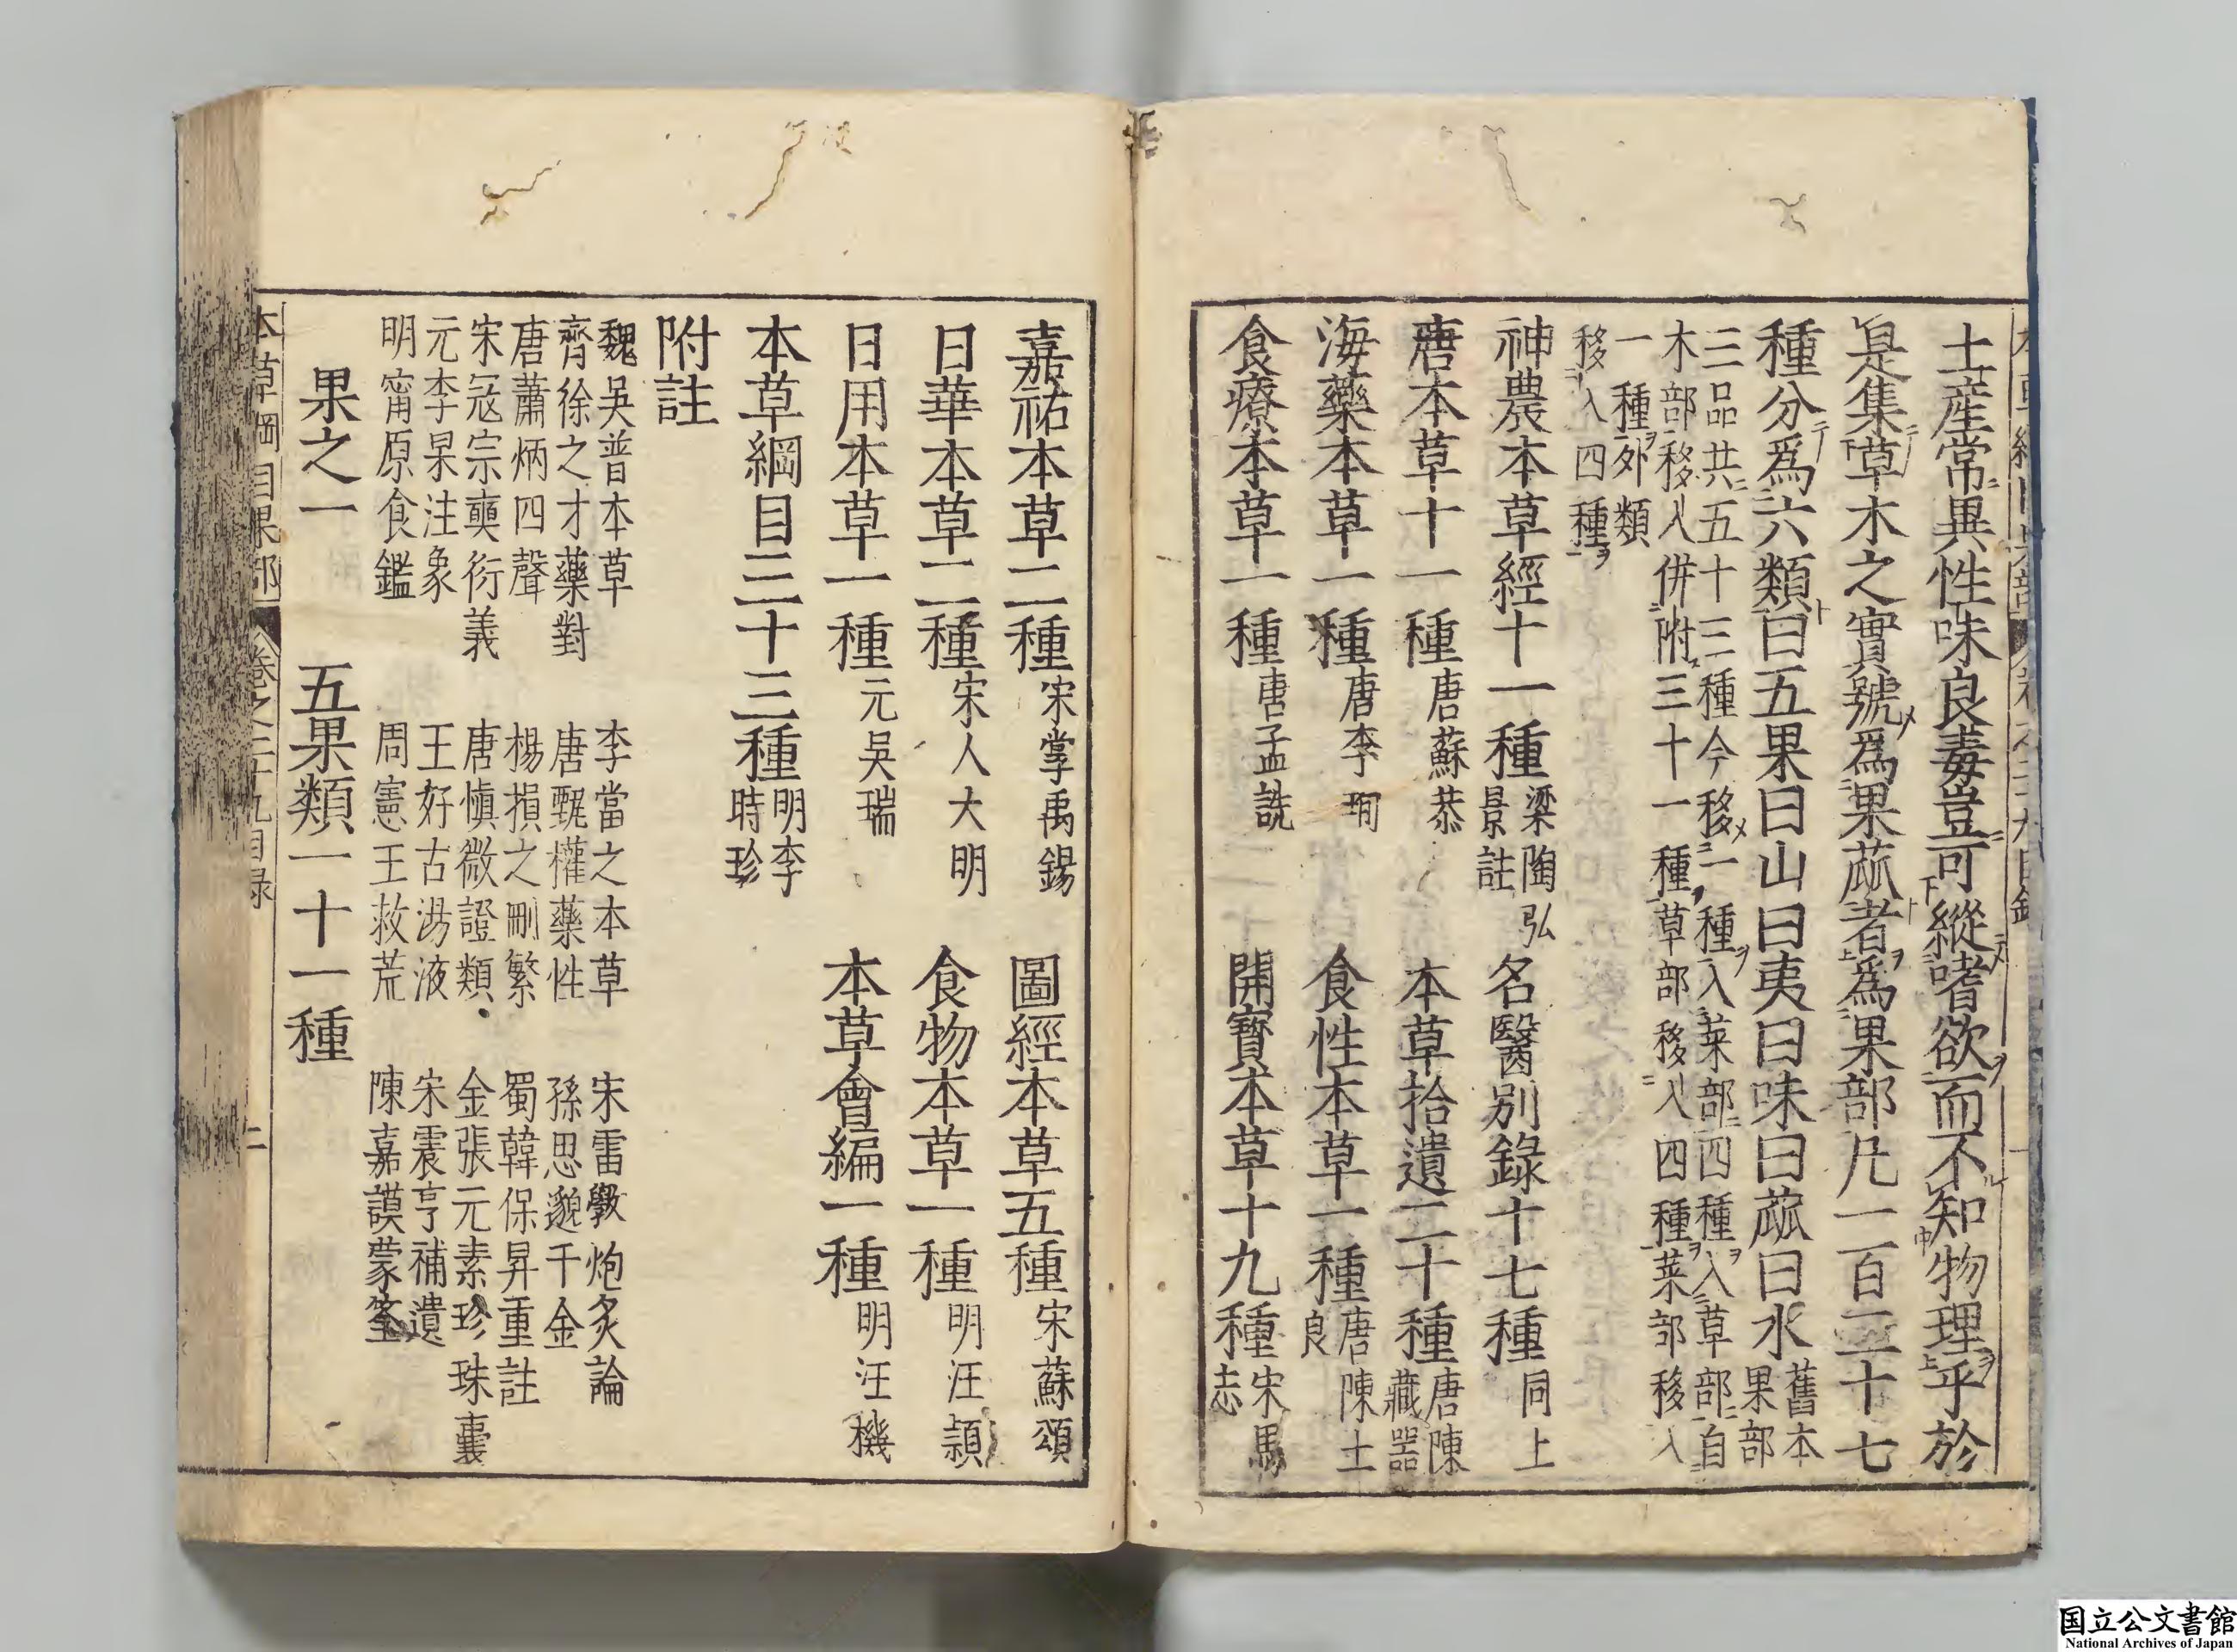 土産常異性味良毒豈可縱嗜欲而不知物理乎於
是集草木之實號爲果蓏者爲果部凡一百二十七
種分爲六類曰五果曰山曰夷曰味曰蓏曰水舊本果部
三品共五十三種今移一種入菜部四種入草部自
木部移入併附三十一種草部移入四種菜部移入
一種外類
移入四種
神農本草經十一種梁陶弘景註 名醫別錄十七種同上
唐本草十一種唐蘇恭 本草拾遺二十種唐陳藏器
海藥本草一種唐李珣 食性本草一種唐陳士良
食療本草一種唐孟詵 開寶本草十九種宋馬志
嘉祐本草二種宋掌禹錫 圖經本草五種宋蘇頌
日華本草二種宋人大明 食物本草一種明汪頴
日用本草一種元吳瑞 本草會編一種明汪機
本草綱目三十三種明李時珍
附註
魏吳普本草 李當之本草 宋雷斅炮炙論
齊徐之才藥對 唐甄權藥性 孫思邈千金
唐蕭炳四聲 楊損之刪繁 蜀韓保昇重註
宋寇宗奭衍義 唐愼微證類 金張元素珍珠囊
元李杲注象 王好古湯液 宋震亨補遺
明甯原食鑑 周憲王救荒 陳嘉謨蒙筌
果之一 五果類一十一種
本草綱目果部 卷之二十九目録 二
国立公文書館
National Archives of Japan